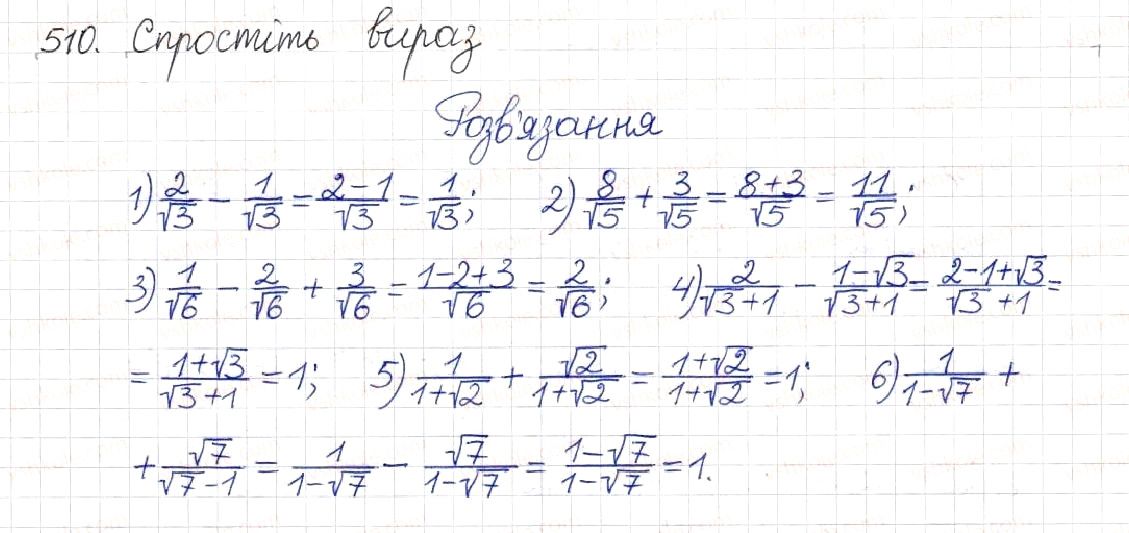 510. Спростіть вираз
Розв'язання
1) 2/√3 − 1/√3 = (2−1)/√3 = 1/√3; 2) 8/√5 + 3/√5 = (8+3)/√5 = 11/√5;
3) 1/√6 − 2/√6 + 3/√6 = (1−2+3)/√6 = 2/√6; 4) 2/(√3+1) − (1−√3)/(√3+1) = (2−1+√3)/(√3+1) =
= (1+√3)/(√3+1) = 1; 5) 1/(1+√2) + √2/(1+√2) = (1+√2)/(1+√2) = 1; 6) 1/(1−√7) +
+ √7/(√7−1) = 1/(1−√7) − √7/(1−√7) = (1−√7)/(1−√7) = 1.